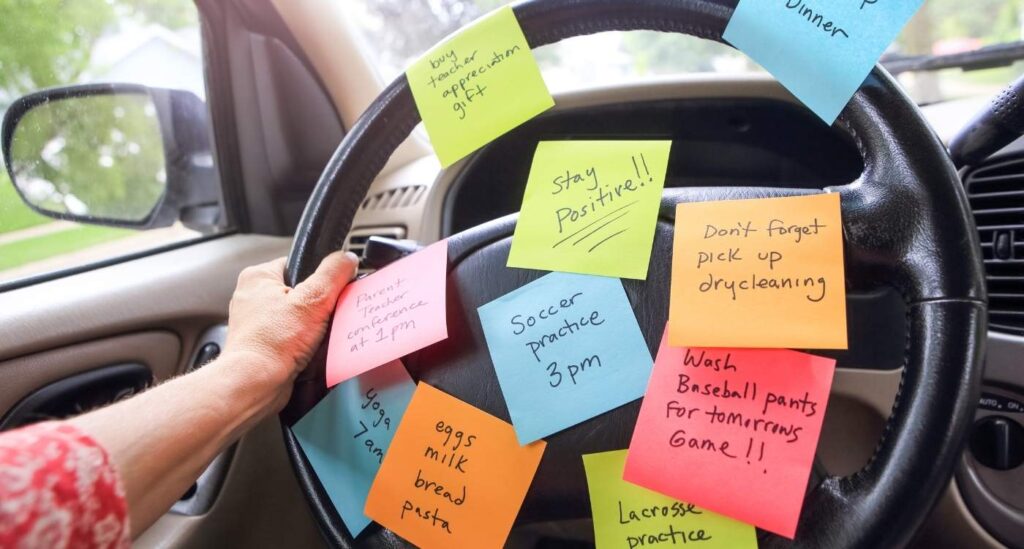 buy
teacher
appreciation
gift
Dinner
Stay
Positive!!
Don't forget
pick up
drycleaning
Parent
Teacher
conference
at 1pm
Soccer
practice
3pm
Wash
Baseball pants
For tomorrows
Game!!
yoga
7am
eggs
milk
bread
pasta
Lacrosse
practice
AUTO
ON